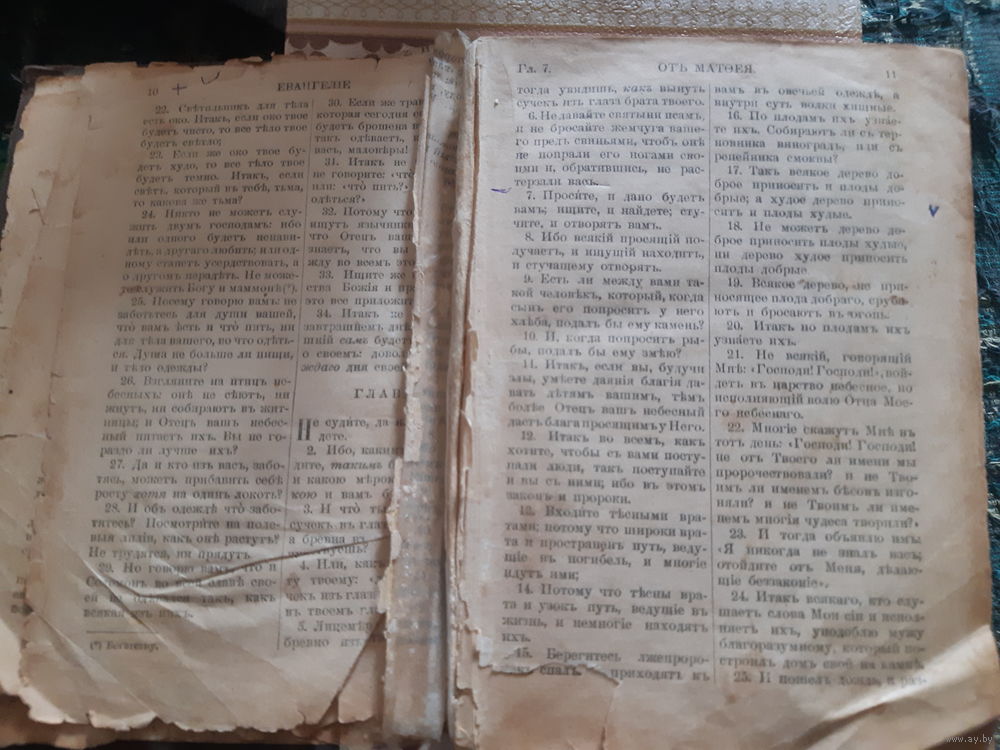 10
ЕВАНГЕЛІЕ
22. Свѣтильникъ для тѣла
есть око. Итакъ, если око твое
будетъ чисто, то все тѣло твое
будетъ свѣтло;
23. Если же око твое бу-
детъ худо, то все тѣло твое
будетъ темно. Итакъ, если
свѣтъ, который въ тебѣ, тьма,
то какова же тьма?
24. Никто не можетъ слу-
жить двумъ господамъ: ибо
или одного будетъ ненави-
дѣть, а другаго любить; или од-
ному станетъ усердствовать, а
о другомъ нерадѣть. Не може-
те служить Богу и маммонѣ(*).
25. Посему говорю вамъ: не
заботьтесь для души вашей,
что вамъ ѣсть и что̀ пить, ни
для тѣла вашего, во что одѣть-
ся. Душа не больше ли пищи,
и тѣло одежды?
26. Взгляните на птицъ не-
бесныхъ: онѣ не сѣютъ, ни
жнутъ, ни собираютъ въ жит-
ницы; и Отецъ вашъ небес-
ный питаетъ ихъ. Вы не го-
раздо ли лучше ихъ?
27. Да и кто изъ васъ, забо-
тясь, можетъ прибавить себѣ
росту хотя на одинъ локоть?
28. И объ одеждѣ что̀ забо-
титесь? Посмотрите на поле-
выя лиліи, какъ онѣ растутъ?
Не трудятся, ни прядутъ
29. Но говорю вамъ, что и
Соломонъ во всей славѣ сво-
ей не одѣвался такъ, какъ
всякая изъ нихъ.
(*) Богатству.
30. Если же трав
которая сегодня е
будетъ брошена в
такъ одѣваетъ, к
васъ, маловѣры!
31. Итакъ не
не говорите: «что
или: «что̀ пить?»
одѣться?»
32. Потому что
ищутъ язычник
что Отецъ ваш
знаетъ, что вы
жду во всемъ это
33. Ищите же
ства Божія и пр
это все приложит
34. Итакъ не
завтрашнемъ дн
шній самъ будет
о своемъ: довол
ждаго дня свое
ГЛАВ
Не судите, да н
дете.
2. Ибо, каким
дите, такимъ б
и какою мѣрою
кою и вамъ б
3. И что̀ т
сучекъ въ гла
а бревна въ
4. Или, какъ
ту твоему: «
чекъ изъ глаз
въ твоемъ гл
5. Лицемѣр
бревно изъ
Гл. 7.
ОТЪ МАТѲЕЯ.
11
тогда увидишь, какъ вынуть
сучекъ изъ глаза брата твоего.
6. Не давайте святыни псамъ,
и не бросайте жемчуга ваше-
го предъ свиньями, чтобъ онѣ
не попрали его ногами сво-
ими и, обратившись, не рас-
терзали васъ.
7. Проси́те, и дано будетъ
вамъ; ищите, и найдете; сту-
чите, и отворятъ вамъ.
8. Ибо всякій просящій по-
лучаетъ, и ищущій находитъ,
и стучащему отворятъ.
9. Есть ли между вами та-
кой человѣкъ, который, когда
сынъ его попроситъ у него
хлѣба, подалъ бы ему камень?
10. И, когда попроситъ ры-
бы, подалъ бы ему змѣю?
11. Итакъ, если вы, будучи
злы, умѣете даянія благія да-
вать дѣтямъ вашимъ, тѣмъ
болѣе Отецъ вашъ небесный
дастъ блага просящимъ у Него.
12. Итакъ во всемъ, какъ
хотите, чтобы съ вами посту-
пали люди, такъ поступайте
и вы съ ними; ибо въ этомъ
законъ и пророки.
13. Входите тѣсными вра-
тами; потому что широки вра-
та и пространенъ путь, веду-
щіе въ погибель, и многіе
идутъ ими;
14. Потому что тѣсны вра-
та и узокъ путь, ведущіе въ
жизнь, и немногіе находятъ
ихъ.
15. Берегитесь лжепроро-
приходятъ къ
вамъ въ овечьей одеждѣ, а
внутри суть волки хищные.
16. По плодамъ ихъ узна́е-
те ихъ. Собираютъ ли съ тер-
новника виноградъ, или съ
репейника смоквы?
17. Такъ всякое дерево до-
брое приноситъ и плоды до-
брые; а худое дерево прино-
ситъ и плоды худые.
18. Не можетъ дерево до-
брое приносить плоды худые,
ни дерево худое приносить
плоды добрые.
19. Всякое дерево, не при-
носящее плода добраго, сруба-
ютъ и бросаютъ въ огонь.
20. Итакъ по плодамъ ихъ
узнаете ихъ.
21. Не всякій, говорящій
Мнѣ: «Господи! Господи!», вой-
детъ въ царство небесное, но
исполняющій волю Отца Мое-
го небеснаго.
22. Многіе скажутъ Мнѣ въ
тотъ день: «Господи! Господи!
не отъ Твоего ли имени мы
пророчествовали? и не Тво-
имъ ли именемъ бѣсовъ изго-
няли? и не Твоимъ ли име-
немъ многія чудеса творили?»
23. И тогда объявлю имъ:
«Я никогда не зналъ васъ;
отойдите отъ Меня, дѣлаю-
щіе беззаконіе».
24. Итакъ всякаго, кто слу-
шаетъ слова Мои сіи и испол-
няетъ ихъ, уподоблю мужу
благоразумному, который по-
строилъ домъ свой на камнѣ.
25. И пошелъ дождь, и раз-
www.ay.by